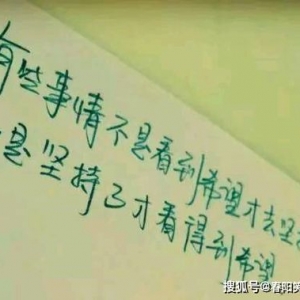 有些事情不是看到希望才去坚
是坚持了才看得到希望
搜狐号@春阳